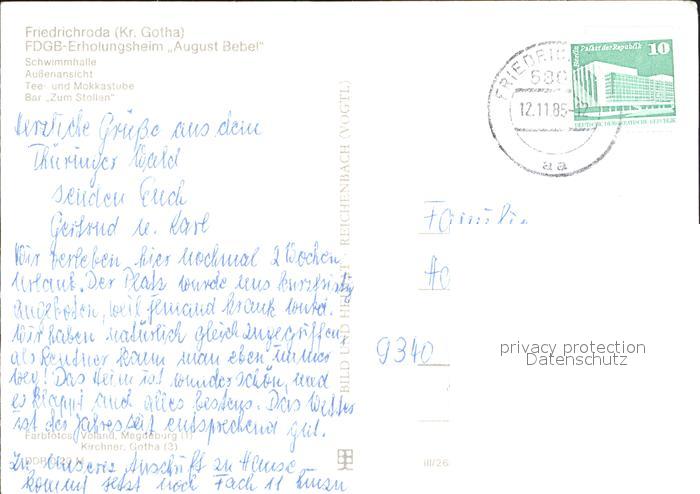 Friedrichroda (Kr. Gotha)
FDGB-Erholungsheim „August Bebel"
Schwimmhalle
Außenansicht
Tee- und Mokkastube
Bar „Zum Stollen"
Herzliche Grüße aus dem
Thüringer Wald
senden Euch
Gertrud u. Karl
Wir verleben hier nochmal 2 Wochen
Urlaub. Der Platz wurde uns kurzfristig
angeboten, weil jemand krank wurde.
Wir haben natürlich gleich zugegriffen,
als Rentner kann man eben immer
weg! Das Heim ist wunderschön, und
es klappt auch alles bestens. Das Wetter
ist der Jahreszeit entsprechend gut.
Farbfotos: Voland, Magdeburg (1)
Kirchner, Gotha (3)
Zu unserer Anschrift zu Hause
kommt jetzt noch Fach 11
BILD UND HEIMAT REICHENBACH (VOGTL)
III/26
FRIEDRICH
580
12.11.85
aa
Berlin, Palast der Republik
10
DEUTSCHE DEMOKRATISCHE REPUBLIK
Familie
9340
privacy protection
Datenschutz